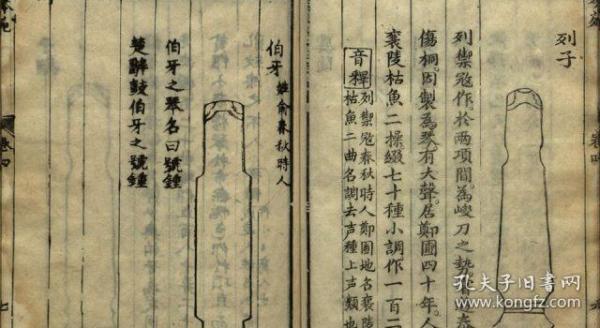 列子
列禦寇作於兩項間為峻刀之勢
傷桐因製為琴有大聲居鄭圃四十年人
襄陵枯魚二操綴七十種小調作一百二
音釋
列禦寇春秋時人鄭圃地名襄陵
枯魚二曲名調去声種上声類也
伯牙 姓俞春秋時人
伯牙之琴名曰號鍾
楚辭鼓伯牙之號鍾
卷四
七
孔夫子旧书网
www.kongfz.com